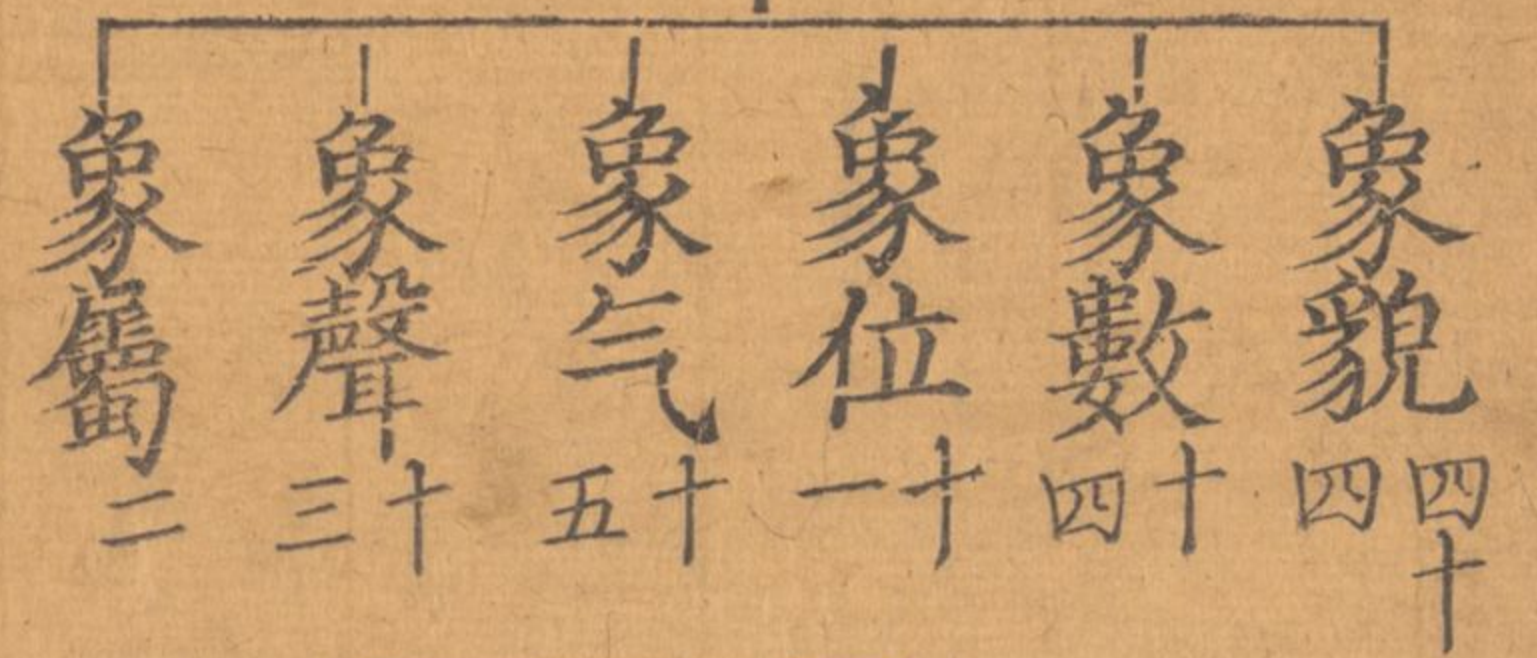 象貌四十四
象數十四
象位十一
象气十五
象聲十三
象屬二